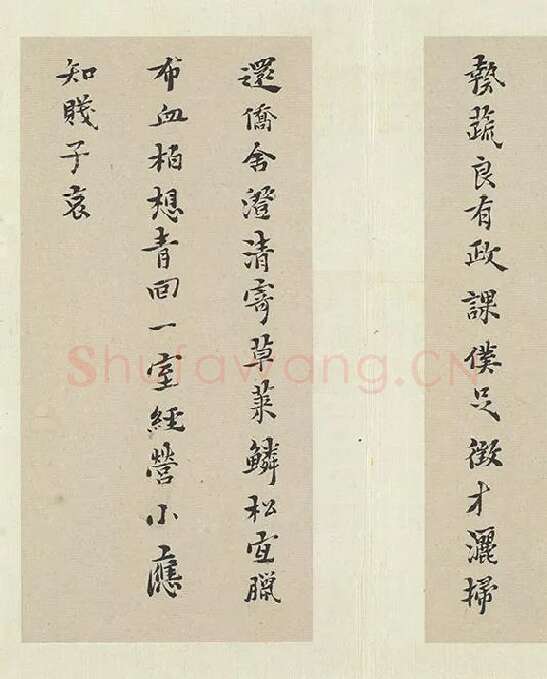 藝蔬良有政課僕足徵才灑掃
還僑舍澄清寄草萊鱗松宜臘
布血柏想青回一室經營小應
知賤子哀
Shufawang.CN